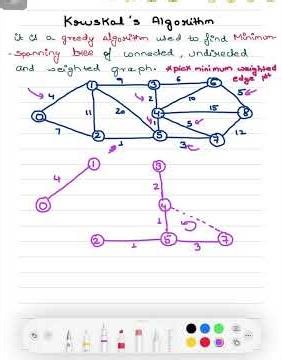 Kruskal's Algorithm
it is a greedy algorithm used to find Minimum-
-spanning tree of connected, undirected
and weighted graph. *pick minimum weighted
edge
1 9 3 6 6
4 2 10 5
0 11 20 4 15 8
7 1 5 12
2 1 5 3 7
1 3
4 2
0 4
1
2 1 5 3 7